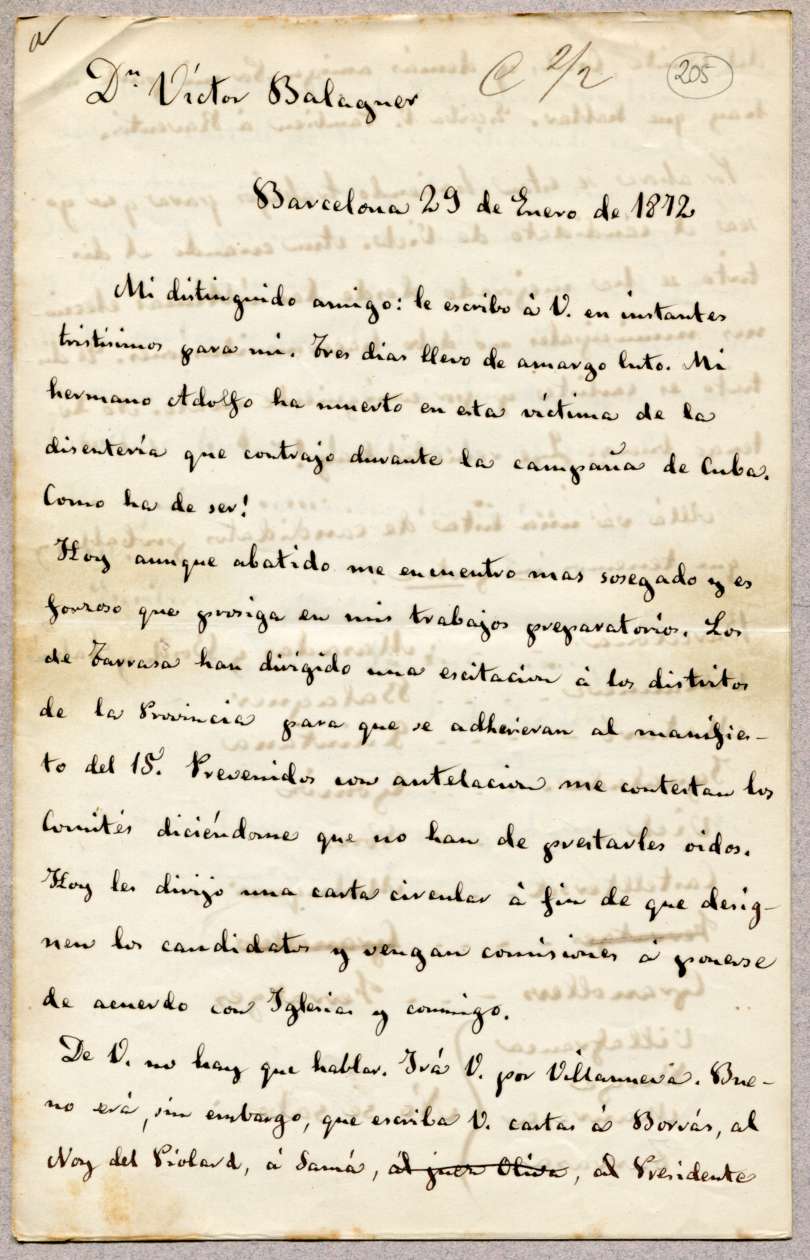 Dn Víctor Balaguer
C 2/2
205
Barcelona 29 de Enero de 1872
Mi distinguido amigo: le escribo á V. en instantes
tristísimos para mi. Tres dias llevo de amargo luto. Mi
hermano Adolfo ha muerto en esta víctima de la
disentería que contrajo durante la campaña de Cuba.
Como ha de ser!
Hoy aunque abatido me encuentro mas sosegado y es
forzoso que prosiga en mis trabajos preparatorios. Los
de Tarrasa han dirigido una escitacion á los distritos
de la Provincia para que se adherieran al manifies-
to del 15. Prevenidos con antelacion me contestan los
Comités diciéndome que no han de prestarles oidos.
Hoy les dirijo una carta circular á fin de que desig-
nen los candidatos y vengan comisiones á ponerse
de acuerdo con Iglesias y conmigo.
De V. no hay que hablar. Irá V. por Villanueva. Bue-
no erá, sin embargo, que escriba V. cartas á Borrás, al
Noy del Piolard, á Samá, al juez Oliva, al Presidente